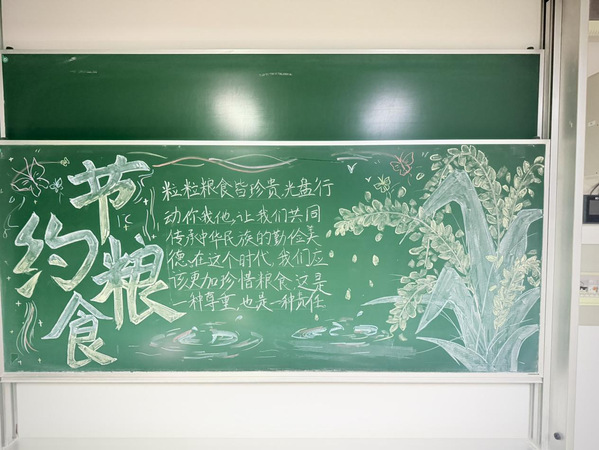 节约粮食
粒粒粮食皆珍贵,光盘行
动你我他,让我们共同
传承中华民族的勤俭美
德,在这个时代,我们应
该更加珍惜粮食,这是
一种尊重,也是一种责任